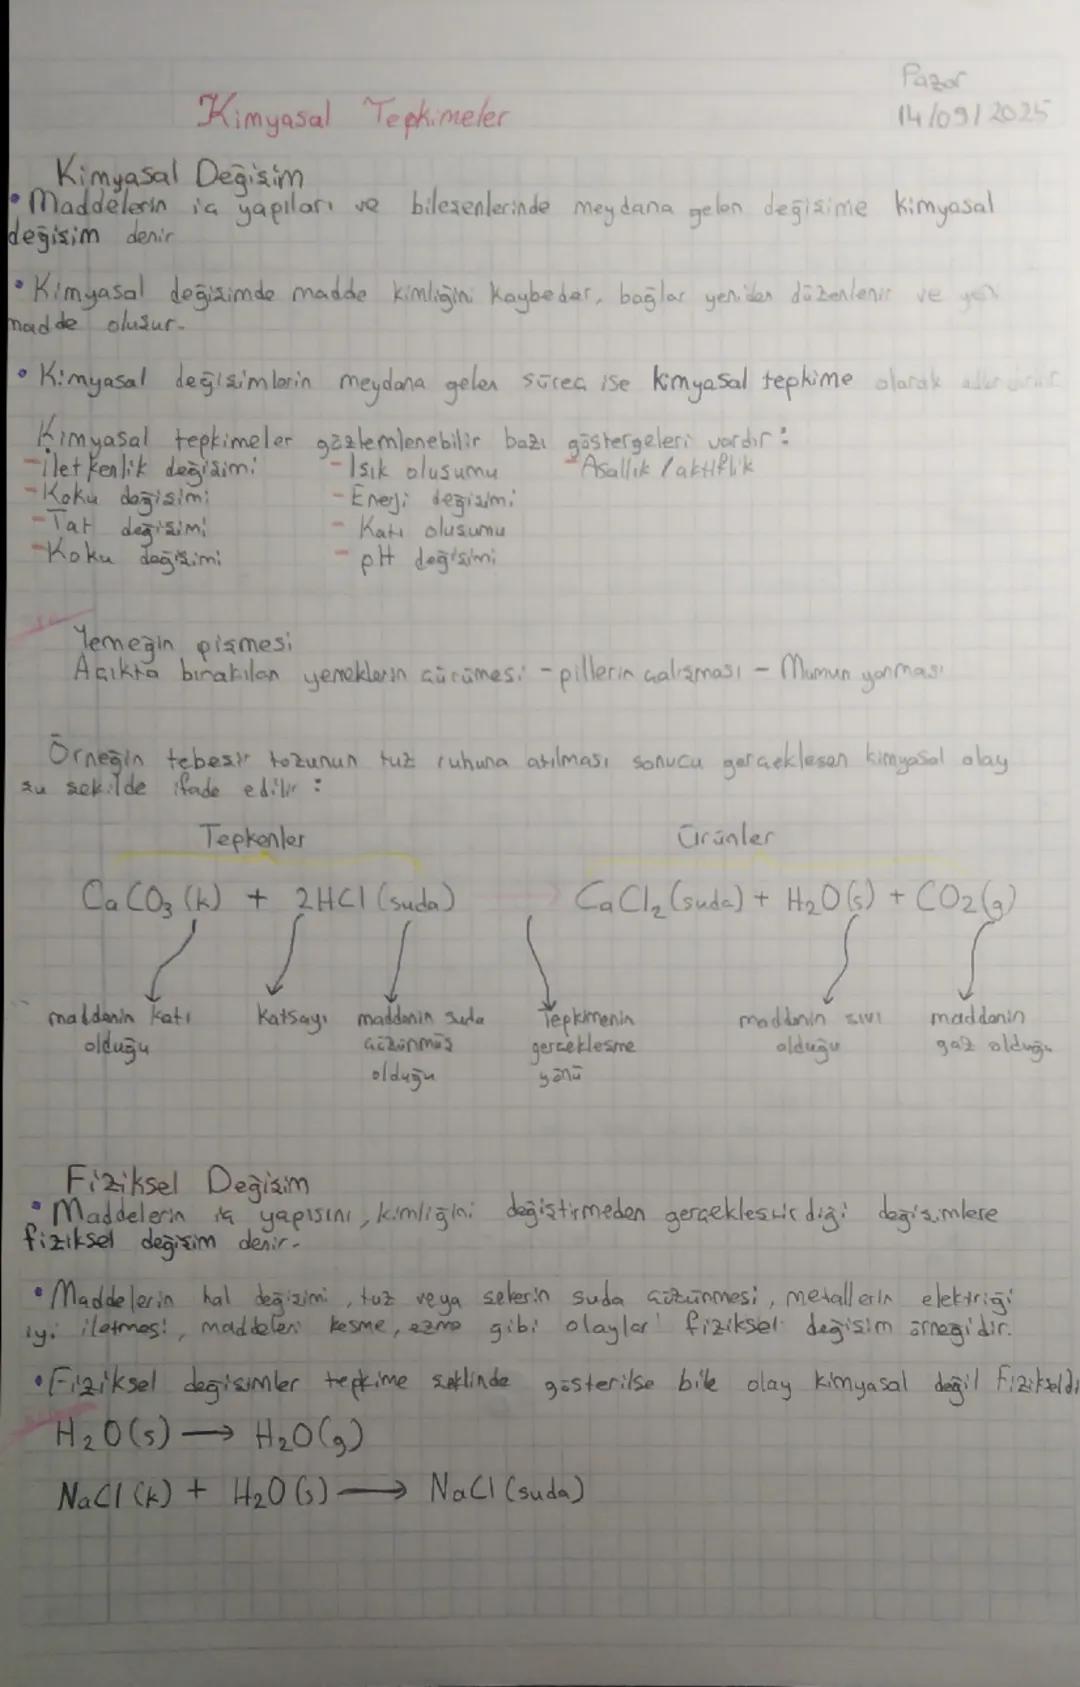 Pazar
14/09/2025
Kimyasal Tepkimeler
Kimyasal Değişim
• Maddelerin iç yapıları ve bileşenlerinde meydana gelen değişime kimyasal
değişim denir
• Kimyasal değişimde madde kimliğini kaybeder, bağlar yeniden düzenlenir ve yeni
madde oluşur.
• Kimyasal değişimlerin meydana gelen süreç ise kimyasal tepkime olarak adlandırılır
Kimyasal tepkimeler gözlemlenebilir bazı göstergeleri vardır :
- İletkenlik değişimi - Işık oluşumu - Asallık / aktiflik
- Koku değişimi - Enerji değişimi
- Tat değişimi - Katı oluşumu
- Koku değişimi - pH değişimi
Yemeğin pişmesi
Açıkta bırakılan yemeklerin çürümesi - pillerin çalışması - Mumun yanması
Örneğin tebeşir tozunun tuz ruhuna atılması sonucu gerçekleşen kimyasal olay
şu şekilde ifade edilir :
Tepkenler Ürünler
CaCO₃ (k) + 2HCl (suda) → CaCl₂ (suda) + H₂O (s) + CO₂ (g)
maddenin katı Katsayı maddenin suda Tepkimenin maddenin sıvı maddenin
olduğu çözünmüş gerçekleşme olduğu gaz olduğu
olduğu yönü
Fiziksel Değişim
• Maddelerin iç yapısını, kimliğini değiştirmeden gerçekleştirdiği değişimlere
fiziksel değişim denir.
• Maddelerin hal değişimi, tuz veya şekerin suda çözünmesi, metallerin elektriği
iyi iletmesi, maddeleri kesme, ezme gibi olaylar fiziksel değişim örneğidir.
• Fiziksel değişimler tepkime şeklinde gösterilse bile olay kimyasal değil fizikseldi
H₂O (s) → H₂O (g)
NaCl (k) + H₂O (s) → NaCl (suda)